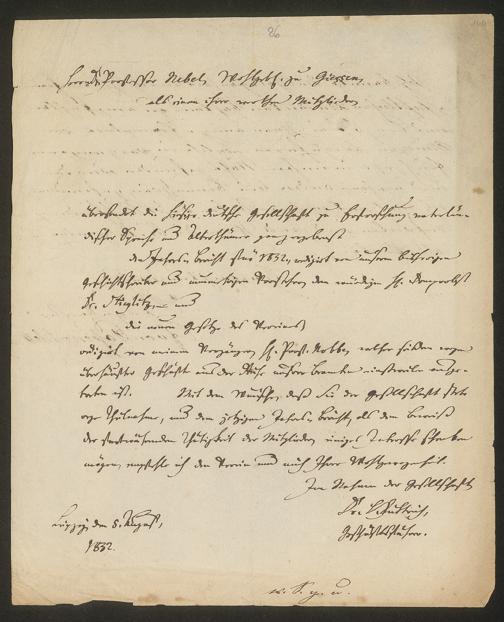 86
Herrn Professor Nebel, Wohlgeb. zu Giessen,
als einem ihrer werthen Mitglieder,
übersendet die hiesige deutsche Gesellschaft zu Erforschung vaterlän-
discher Sprache und Alterthümer ganz ergebenst
den Jahres-Bericht 1832, redigirt von unserm bisherigen
Geschäftsführer und nunmehrigen Vorsteher, dem würdigen H. Domprobst
Dr. Stieglitz, und
die neuen Gesetze des Vereines
redigirt von meinem Vorgänger H. Prof. Nobbe, welcher seitdem wegen
überhäufter Geschäfte aus der Reihe unsrer Beamten einstweilen ausge-
treten ist. Mit dem Wunsche, daß Sie der Gesellschaft stets
rege Theilnahme, und dem jetzigen Jahres-Bericht, als dem Beweise
der fortwährenden Thätigkeit der Mitglieder einiges Interesse schenken
mögen, empfehle ich den Verein und mich Ihrer Wohlgewogenheit.
Im Namen der Gesellschaft
Dr. L. Puttrich,
Geschäftsführer.
Leipzig, den 8. August,
1832.